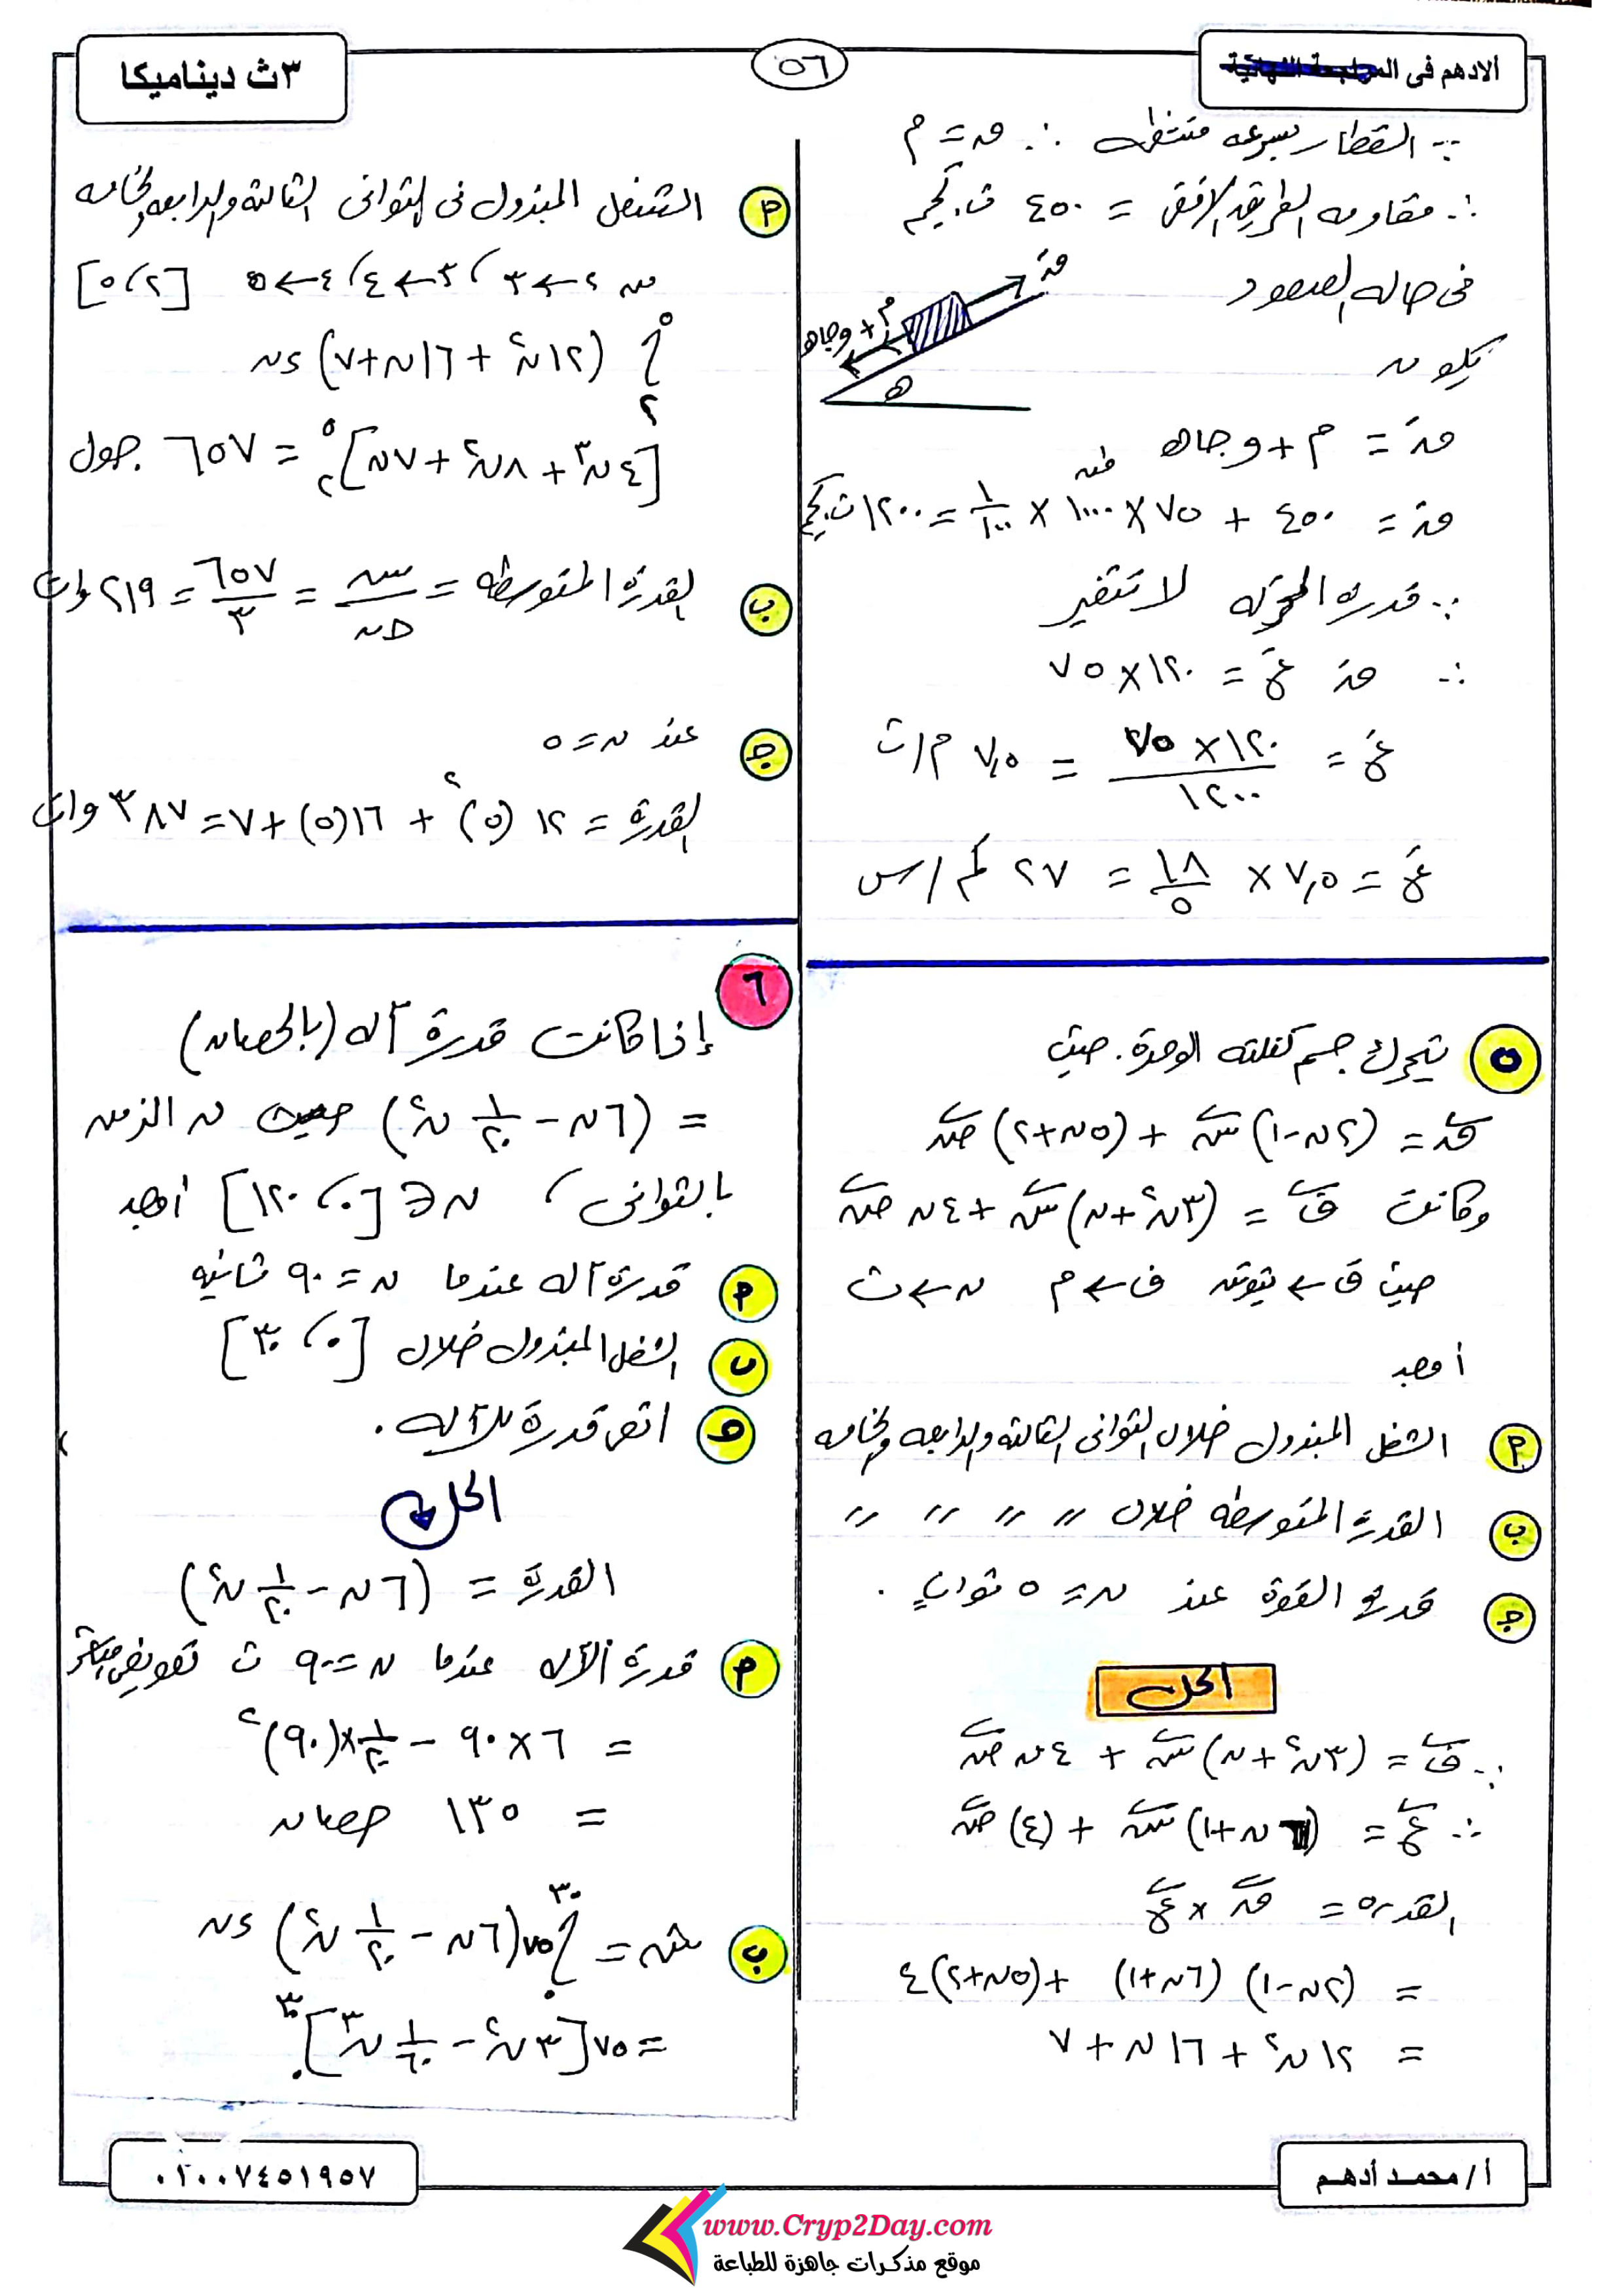 ألادهم فى المراجعة النهائية
٥٦
٣ث ديناميكا
∵ القطار بسرعه منتظمه ∴ ق = م
∴ مقاومه الطريق الافقى = ٤٥٠ ث.كجم
فى حاله الصعود
يكون
قَ
م + و حاھ
ھ
قَ = م + و حاھ
قَ = ٤٥٠ + ٧٥ × ١٠٠٠ × ١/١٠٠ = ١٢٠٠ ث.كجم
∵ قدرة المحرك لا تتغير
∴ قَ عَ = ١٢٠ × ٧٥
عَ = (١٢٠ × ٧٥)/١٢٠٠ = ٧,٥ م/ث
عَ = ٧,٥ × ١٨/٥ = ٢٧ كم/س
٥ يتحرك جسم كتلته الوحدة. حيث
ق = (٢ن - ١) س + (٥ن + ٢) ص
وكانت ف = (٣ن² + ن) س + ٤ن ص
حيث ق ← نيوتن ف ← م ن ← ث
أوجد
P الشغل المبذول خلال الثوانى الثالثة والرابعه والخامسه
ب القدرة المتوسطه خلال // // // //
ج قدرة القوة عند ن = ٥ ثوانٍ .
الحل
∵ ف = (٣ن² + ن) س + ٤ن ص
∴ ع = (٦ن + ١) س + (٤) ص
القدره = ق × ع
= (٢ن - ١) (٦ن + ١) + (٥ن + ٢) ٤
= ١٢ن² + ١٦ن + ٧
P الشغل المبذول فى الثوانى الثالثة والرابعه والخامسه
من ٢ ← ٣ ، ٣ ← ٤ ، ٤ ← ٥ [٢ ، ٥]
∫₂⁵ (١٢ن² + ١٦ن + ٧) ءن
[٤ن³ + ٨ن² + ٧ن]₂⁵ = ٦٥٧ جول
ب القدرة المتوسطه = ش/Δن = ٦٥٧/٣ = ٢١٩ وات
ج عند ن = ٥
القدرة = ١٢ (٥)² + ١٦(٥) + ٧ = ٣٨٧ وات
٦
إذا كانت قدرة آله (بالحصان)
= (٦ن - ١/٢٠ ن²) حيث ن الزمن
بالثوانى ، ن ∈ [٠ ، ١٢٠] أوجد
P قدرة آله عندما ن = ٩٠ ثانيه
ب الشغل المبذول خلال [٠ ، ٣٠]
ج اقصى قدرة للآله .
الحل
القدرة = (٦ن - ١/٢٠ ن²)
P قدرة الآله عندما ن = ٩٠ ث تعويض مباشر
= ٦ × ٩٠ - ١/٢٠ × (٩٠)²
= ١٣٥ حصان
ب ش = ∫₀³⁰ ٧٥(٦ن - ١/٢٠ ن²) ءن
= ٧٥[٣ن² - ١/٦٠ ن³]₀³⁰
أ / محمـد أدهـم
٠١٠٠٧٤٥١٩٥٧
www.Cryp2Day.com
موقع مذكرات جاهزة للطباعة